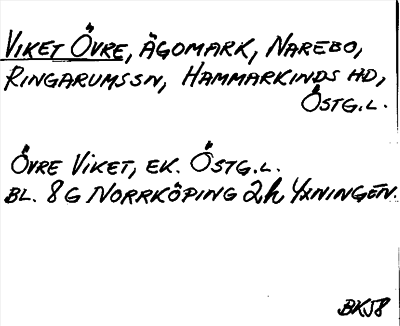 VIKET ÖVRE, ÄGOMARK, NAREBO,
RINGARUMSSN, HAMMARKINDS HD,
ÖSTG.L.
ÖVRE VIKET, EK. ÖSTG.L.
BL. 8G NORRKÖPING 2h YXNINGEN.
BK58